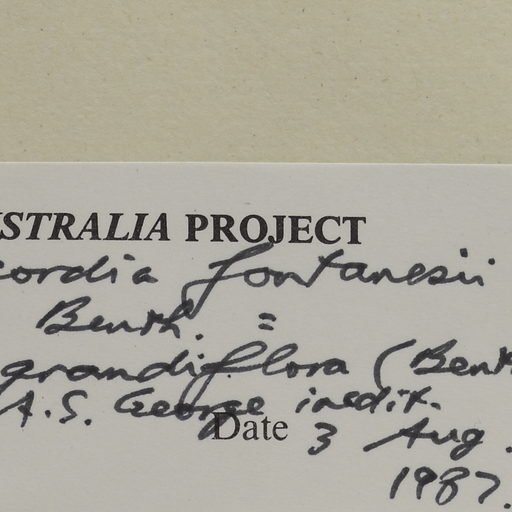 USTRALIA PROJECT
cordia fontanesii
Benth. =
grandiflora (Benth
A.S. George inedit.
Date 3 Aug.
1987.